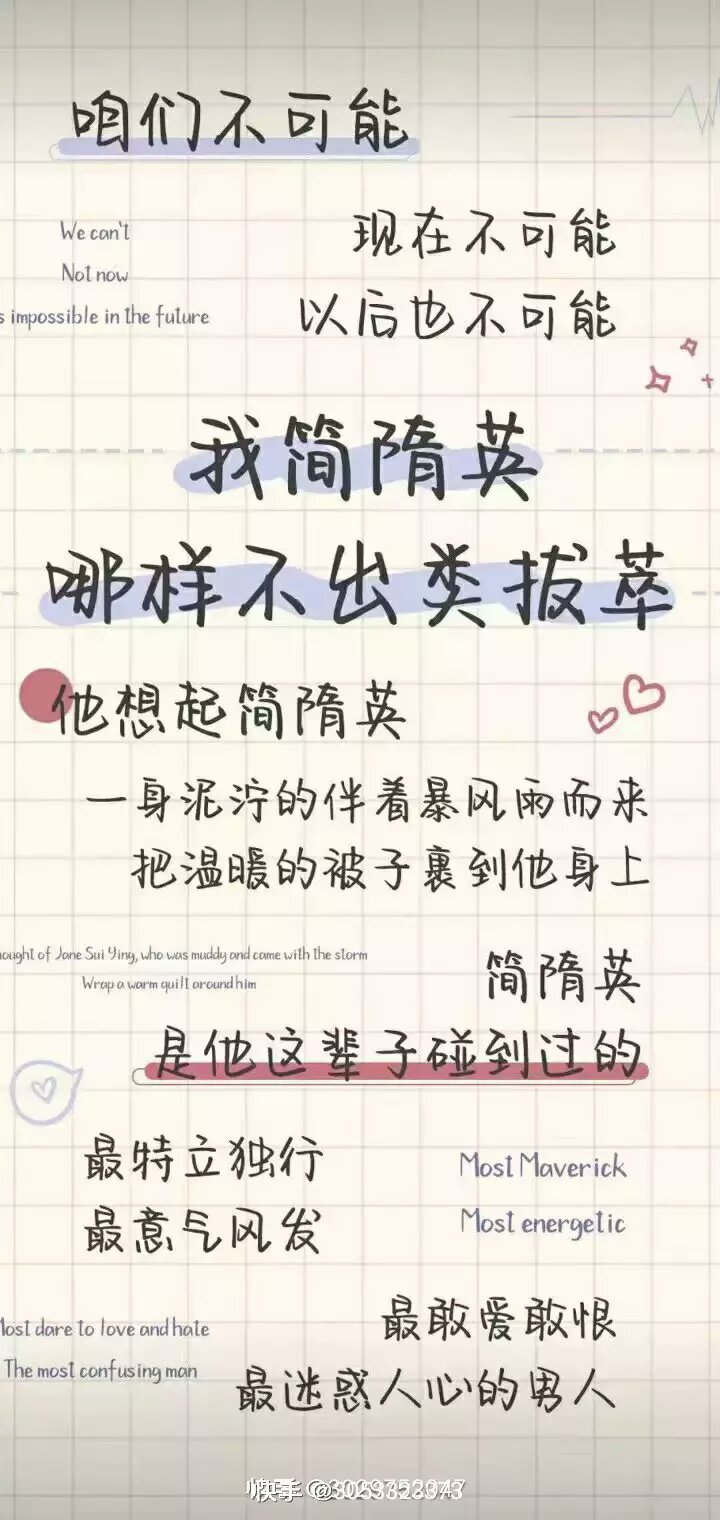 咱们不可能
We can't
现在不可能
Not now
以后也不可能
s impossible in the future
我简隋英
哪样不出类拔萃
他想起简隋英
一身泥泞的伴着暴风雨而来
把温暖的被子裹到他身上
ought of Jane Sui Ying, who was muddy and came with the storm
Wrap a warm quilt around him
简隋英
是他这辈子碰到过的
最特立独行
Most Maverick
最意气风发
Most energetic
最敢爱敢恨
Most dare to love and hate
最迷惑人心的男人
The most confusing man
快手